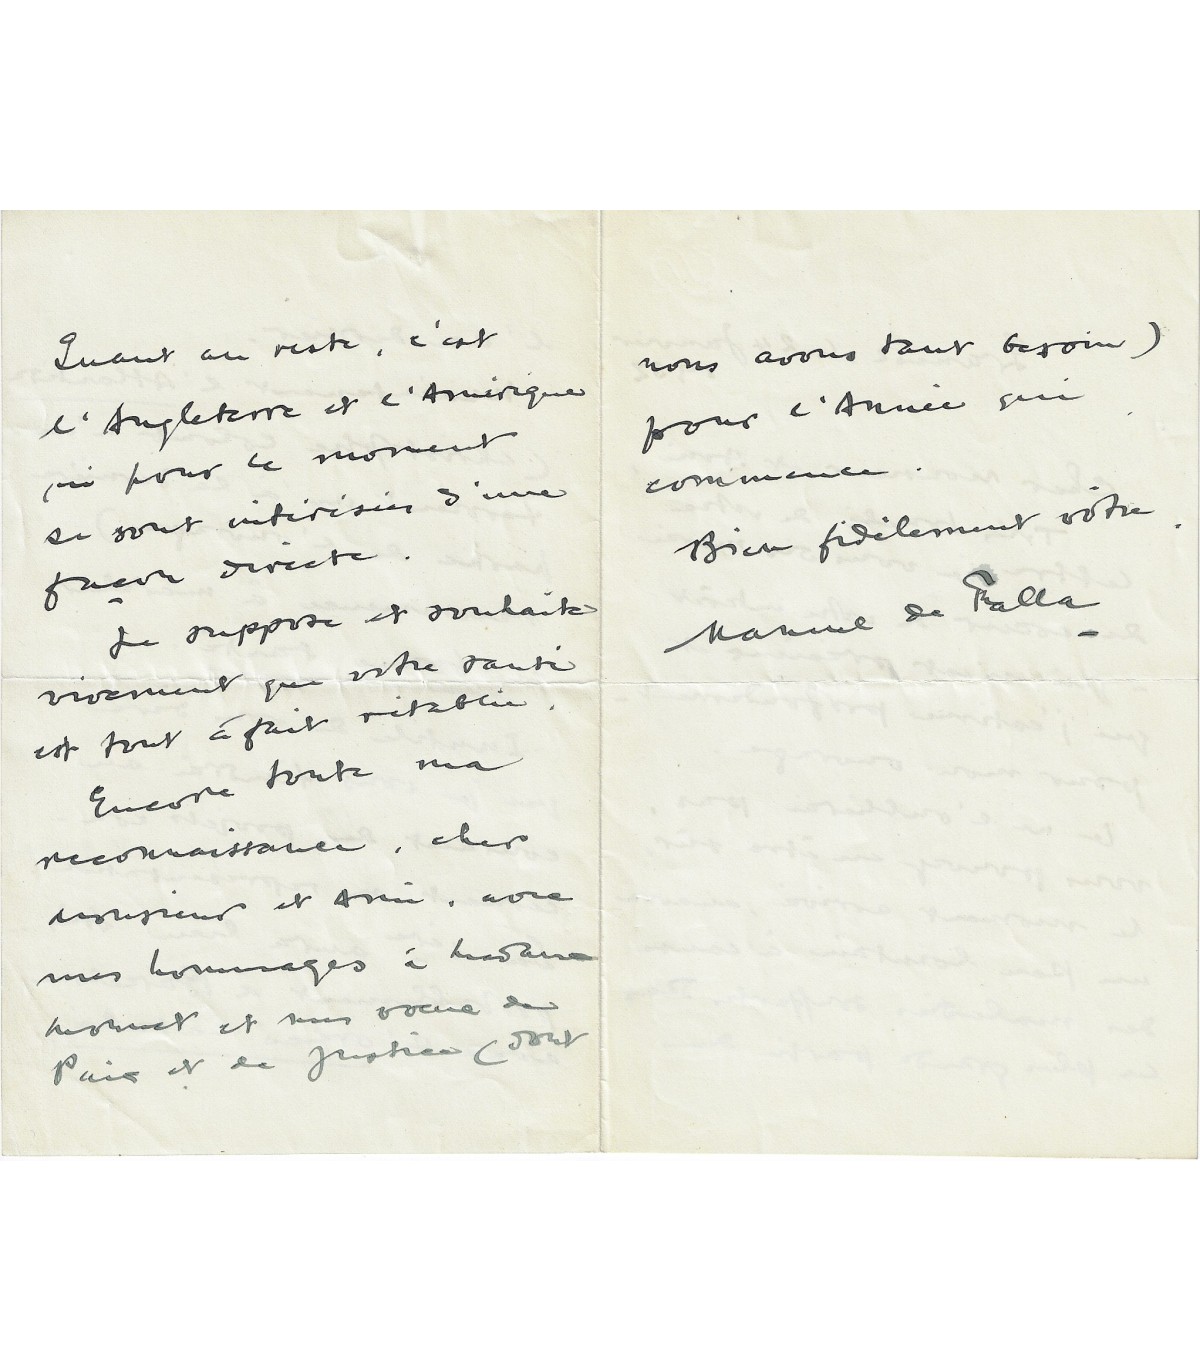 Quant au reste, c'est
l'Angleterre et l'Amérique
qui pour le moment
se sont intérisées d'une
façon directe.
Je suppose et souhaite
vivement que votre santé
est tout à fait rétablie.
Encore toute ma
reconnaissance, cher
Monsieur et Ami, avec
mes hommages à Madame
et mes voeux de
Paix et de Justice (dont
nous avons tant besoin)
pour l'Année qui
commence.
Bien fidèlement vôtre,
Manuel de Falla